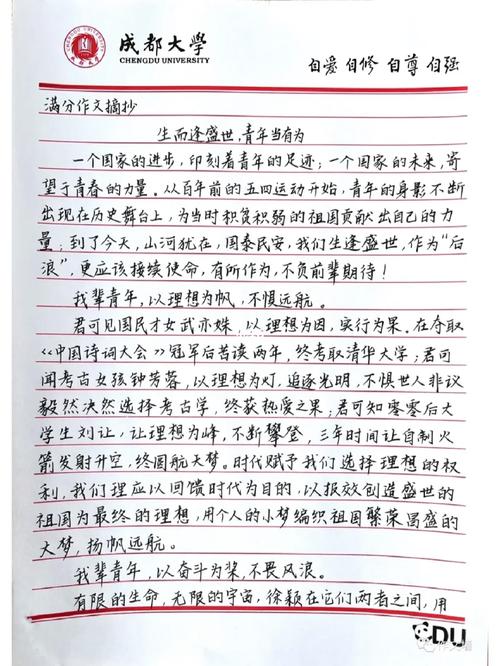 成都大学
CHENGDU UNIVERSITY
自爱 自修 自尊 自强
满分作文摘抄
生而逢盛世，青年当有为
一个国家的进步，印刻着青年的足迹；一个国家的未来，寄
望于青春的力量。从百年前的五四运动开始，青年的身影不断
出现在历史舞台上，为当时积贫积弱的祖国贡献出自己的力
量；到了今天，山河犹在，国泰民安，我们生逢盛世，作为“后
浪”，更应该接续使命，有所作为，不负前辈期待！
我辈青年，以理想为帆，不惧远航。
君可见国民才女武亦姝，以理想为因，实行为果，在夺取
《中国诗词大会》冠军后苦读两年，终考取清华大学；君可
闻考古女孩钟芳蓉，以理想为灯，追逐光明，不惧世人非议
毅然决然选择考古学，终获热爱之果；君可知零零后大
学生刘让，让理想为峰，不断攀登，三年时间让自制火
箭发射升空，终圆航天梦。时代赋予我们选择理想的权
利，我们理应以回馈时代为目的，以报效创造盛世的
祖国为最终的理想，用个人的小梦编织祖国繁荣昌盛的
大梦，扬帆远航。
我辈青年，以奋斗为桨，不畏风浪。
有限的生命，无限的宇宙，徐颖在它们两者之间，用
CDU